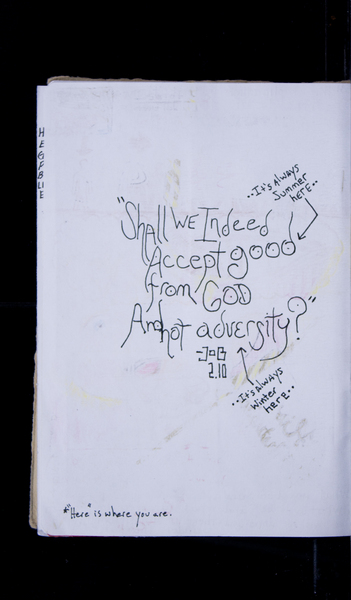 ..It's Always
Summer
here..
"Shall WE Indeed
Accept good
from GOD
And not adversity?"
-JOB
2.10
..It's Always
Winter
here..
*"Here" is where you are.